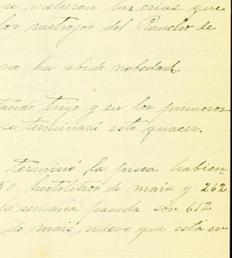 se metieron las crias que
los rastrojos del Rancho de
no ha abido nobedad.
tando trigo y en los primeros
se terminará este quacer.
terminó la pisca habien
50, hectolitros de mais y 262
la semana pasada son 612
de mais nuevo que está en